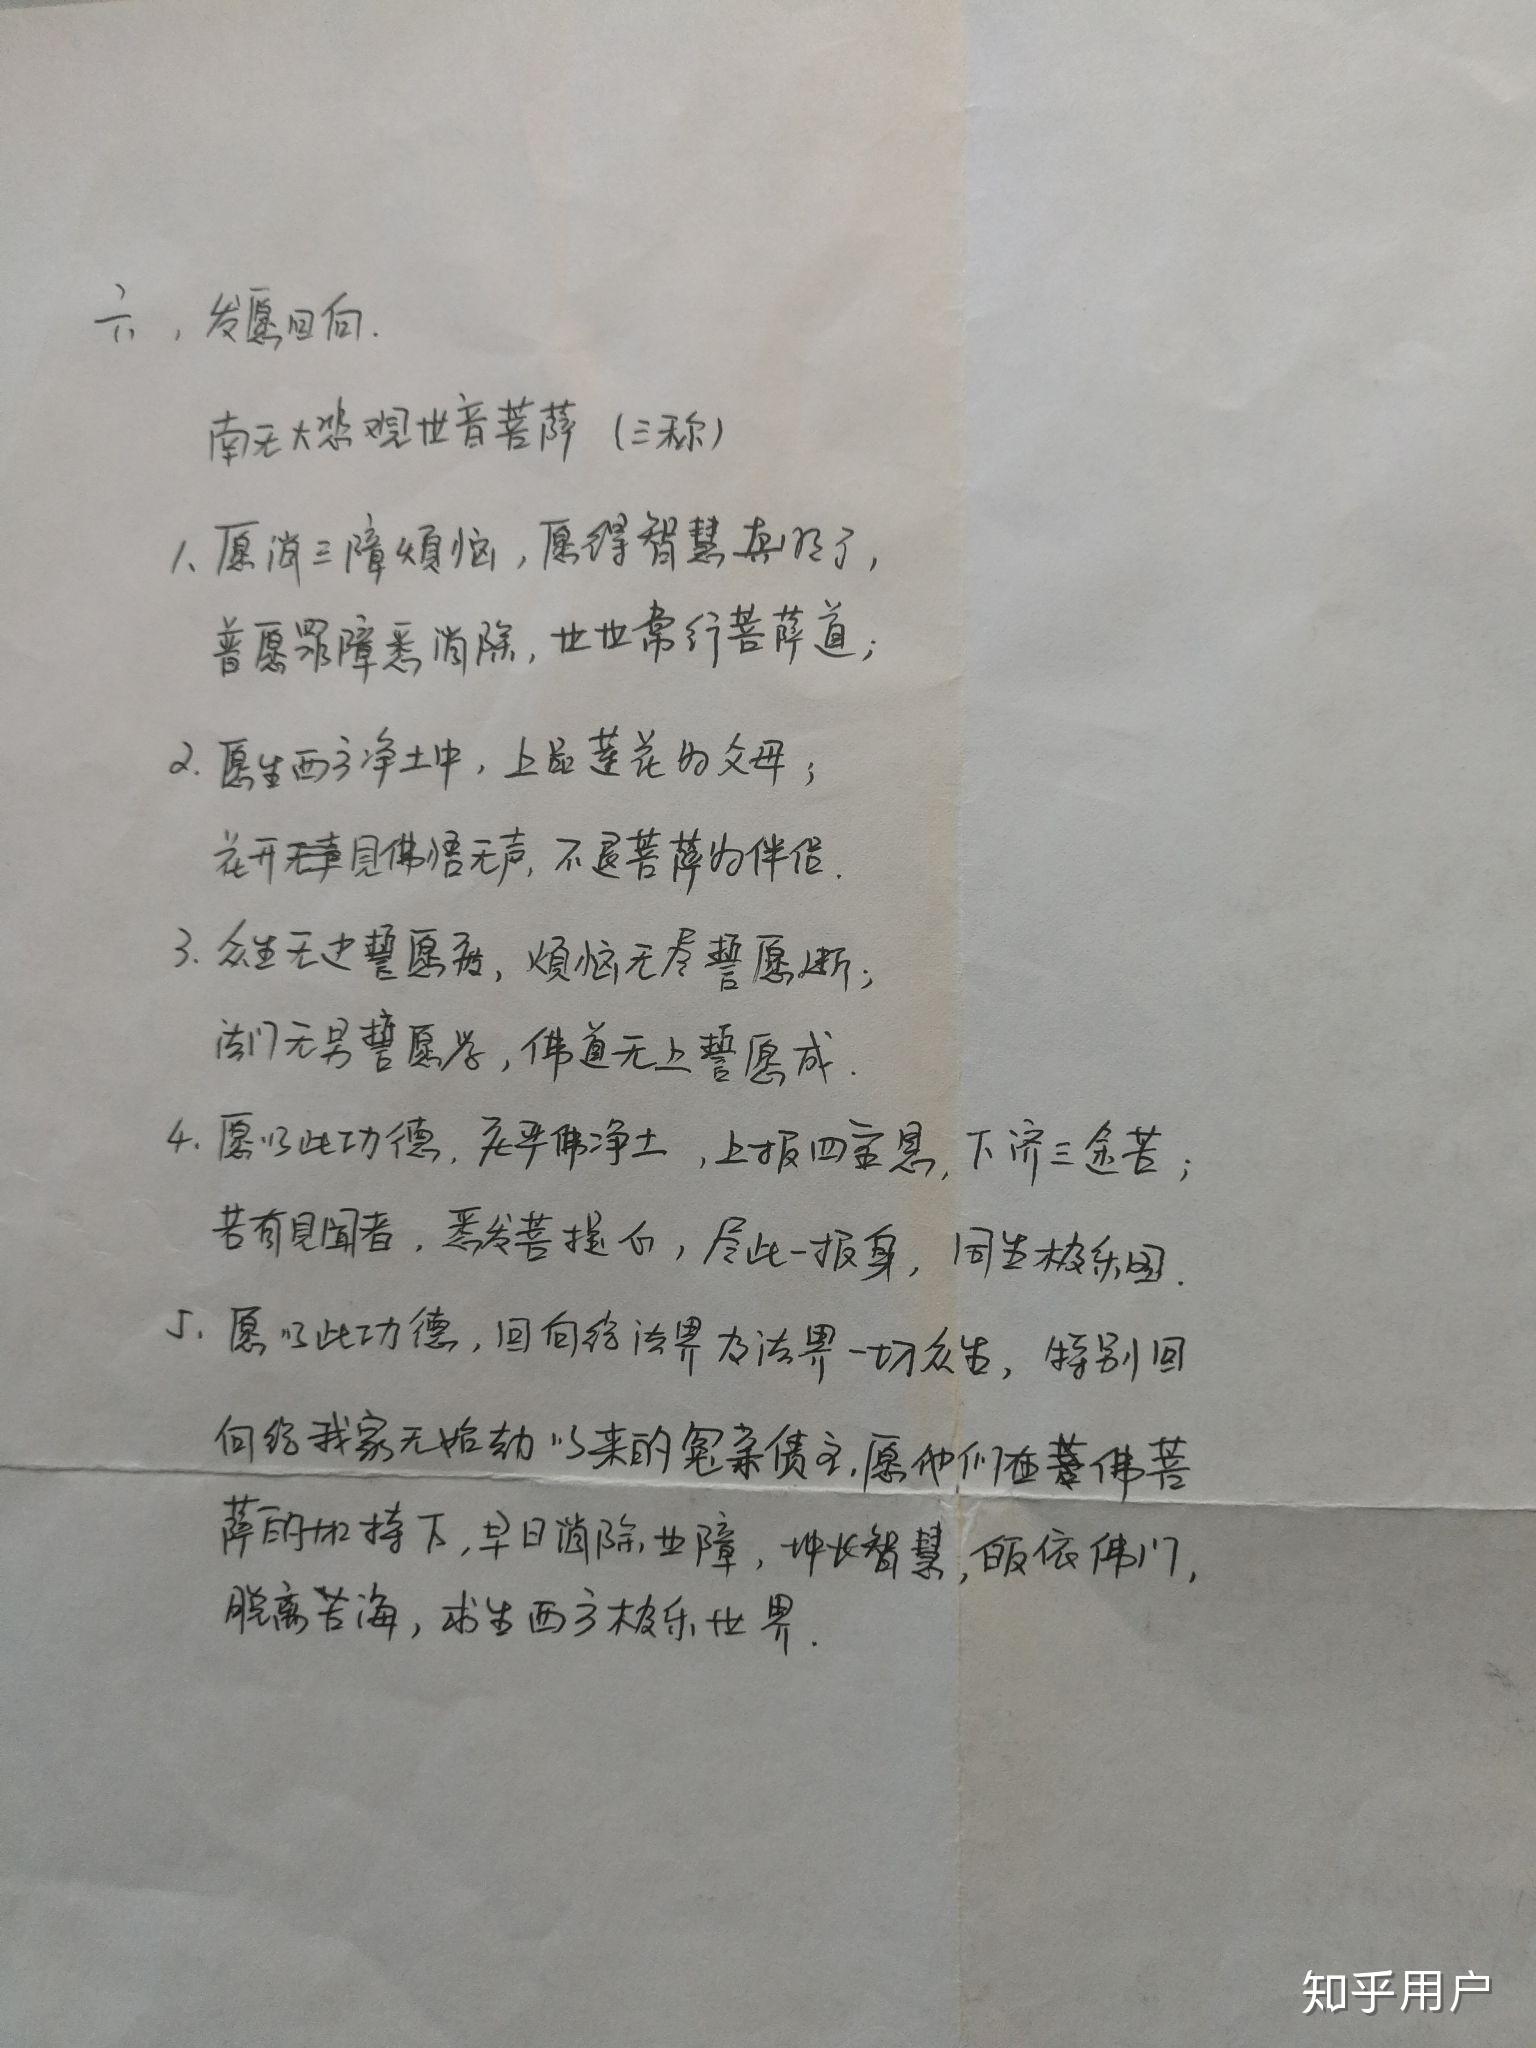 六，发愿回向.
南无大悲观世音菩萨（三称）
1、愿消三障烦恼，愿得智慧真明了，
普愿罪障悉消除，世世常行菩萨道；
2. 愿生西方净土中，上品莲花为父母；
花开见佛悟无声，不退菩萨为伴侣.
3. 众生无边誓愿度，烦恼无尽誓愿断；
法门无另誓愿学，佛道无上誓愿成.
4. 愿以此功德，庄严佛净土，上报四重恩，下济三途苦；
若有见闻者，悉发菩提心，尽此一报身，同生极乐国.
5. 愿以此功德，回向给法界及法界一切众生，特别回
向给我家无始劫以来的冤亲债主，愿他们在佛菩
萨的加持下，早日消除业障，增长智慧，皈依佛门，
脱离苦海，求生西方极乐世界.
知乎用户